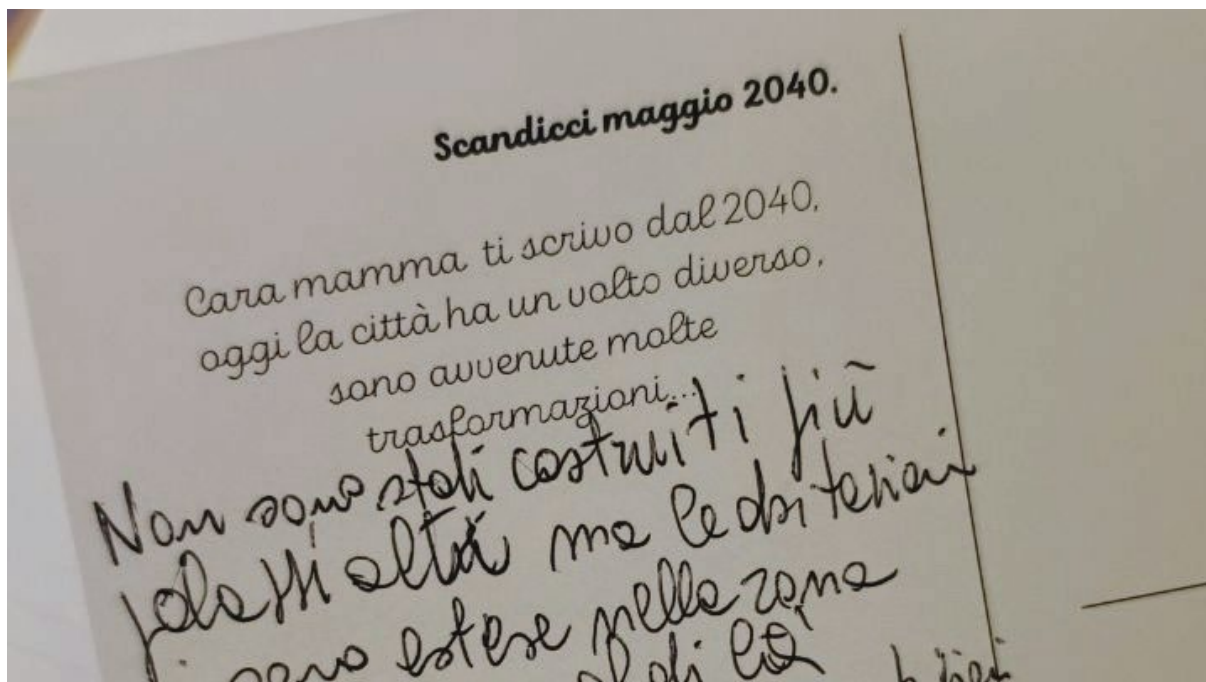 Scandicci maggio 2040.
Cara mamma ti scrivo dal 2040,
oggi la città ha un volto diverso,
sono avvenute molte
trasformazioni...
Non sono stati costruiti più
ma le
sono estese nella zona
al di là